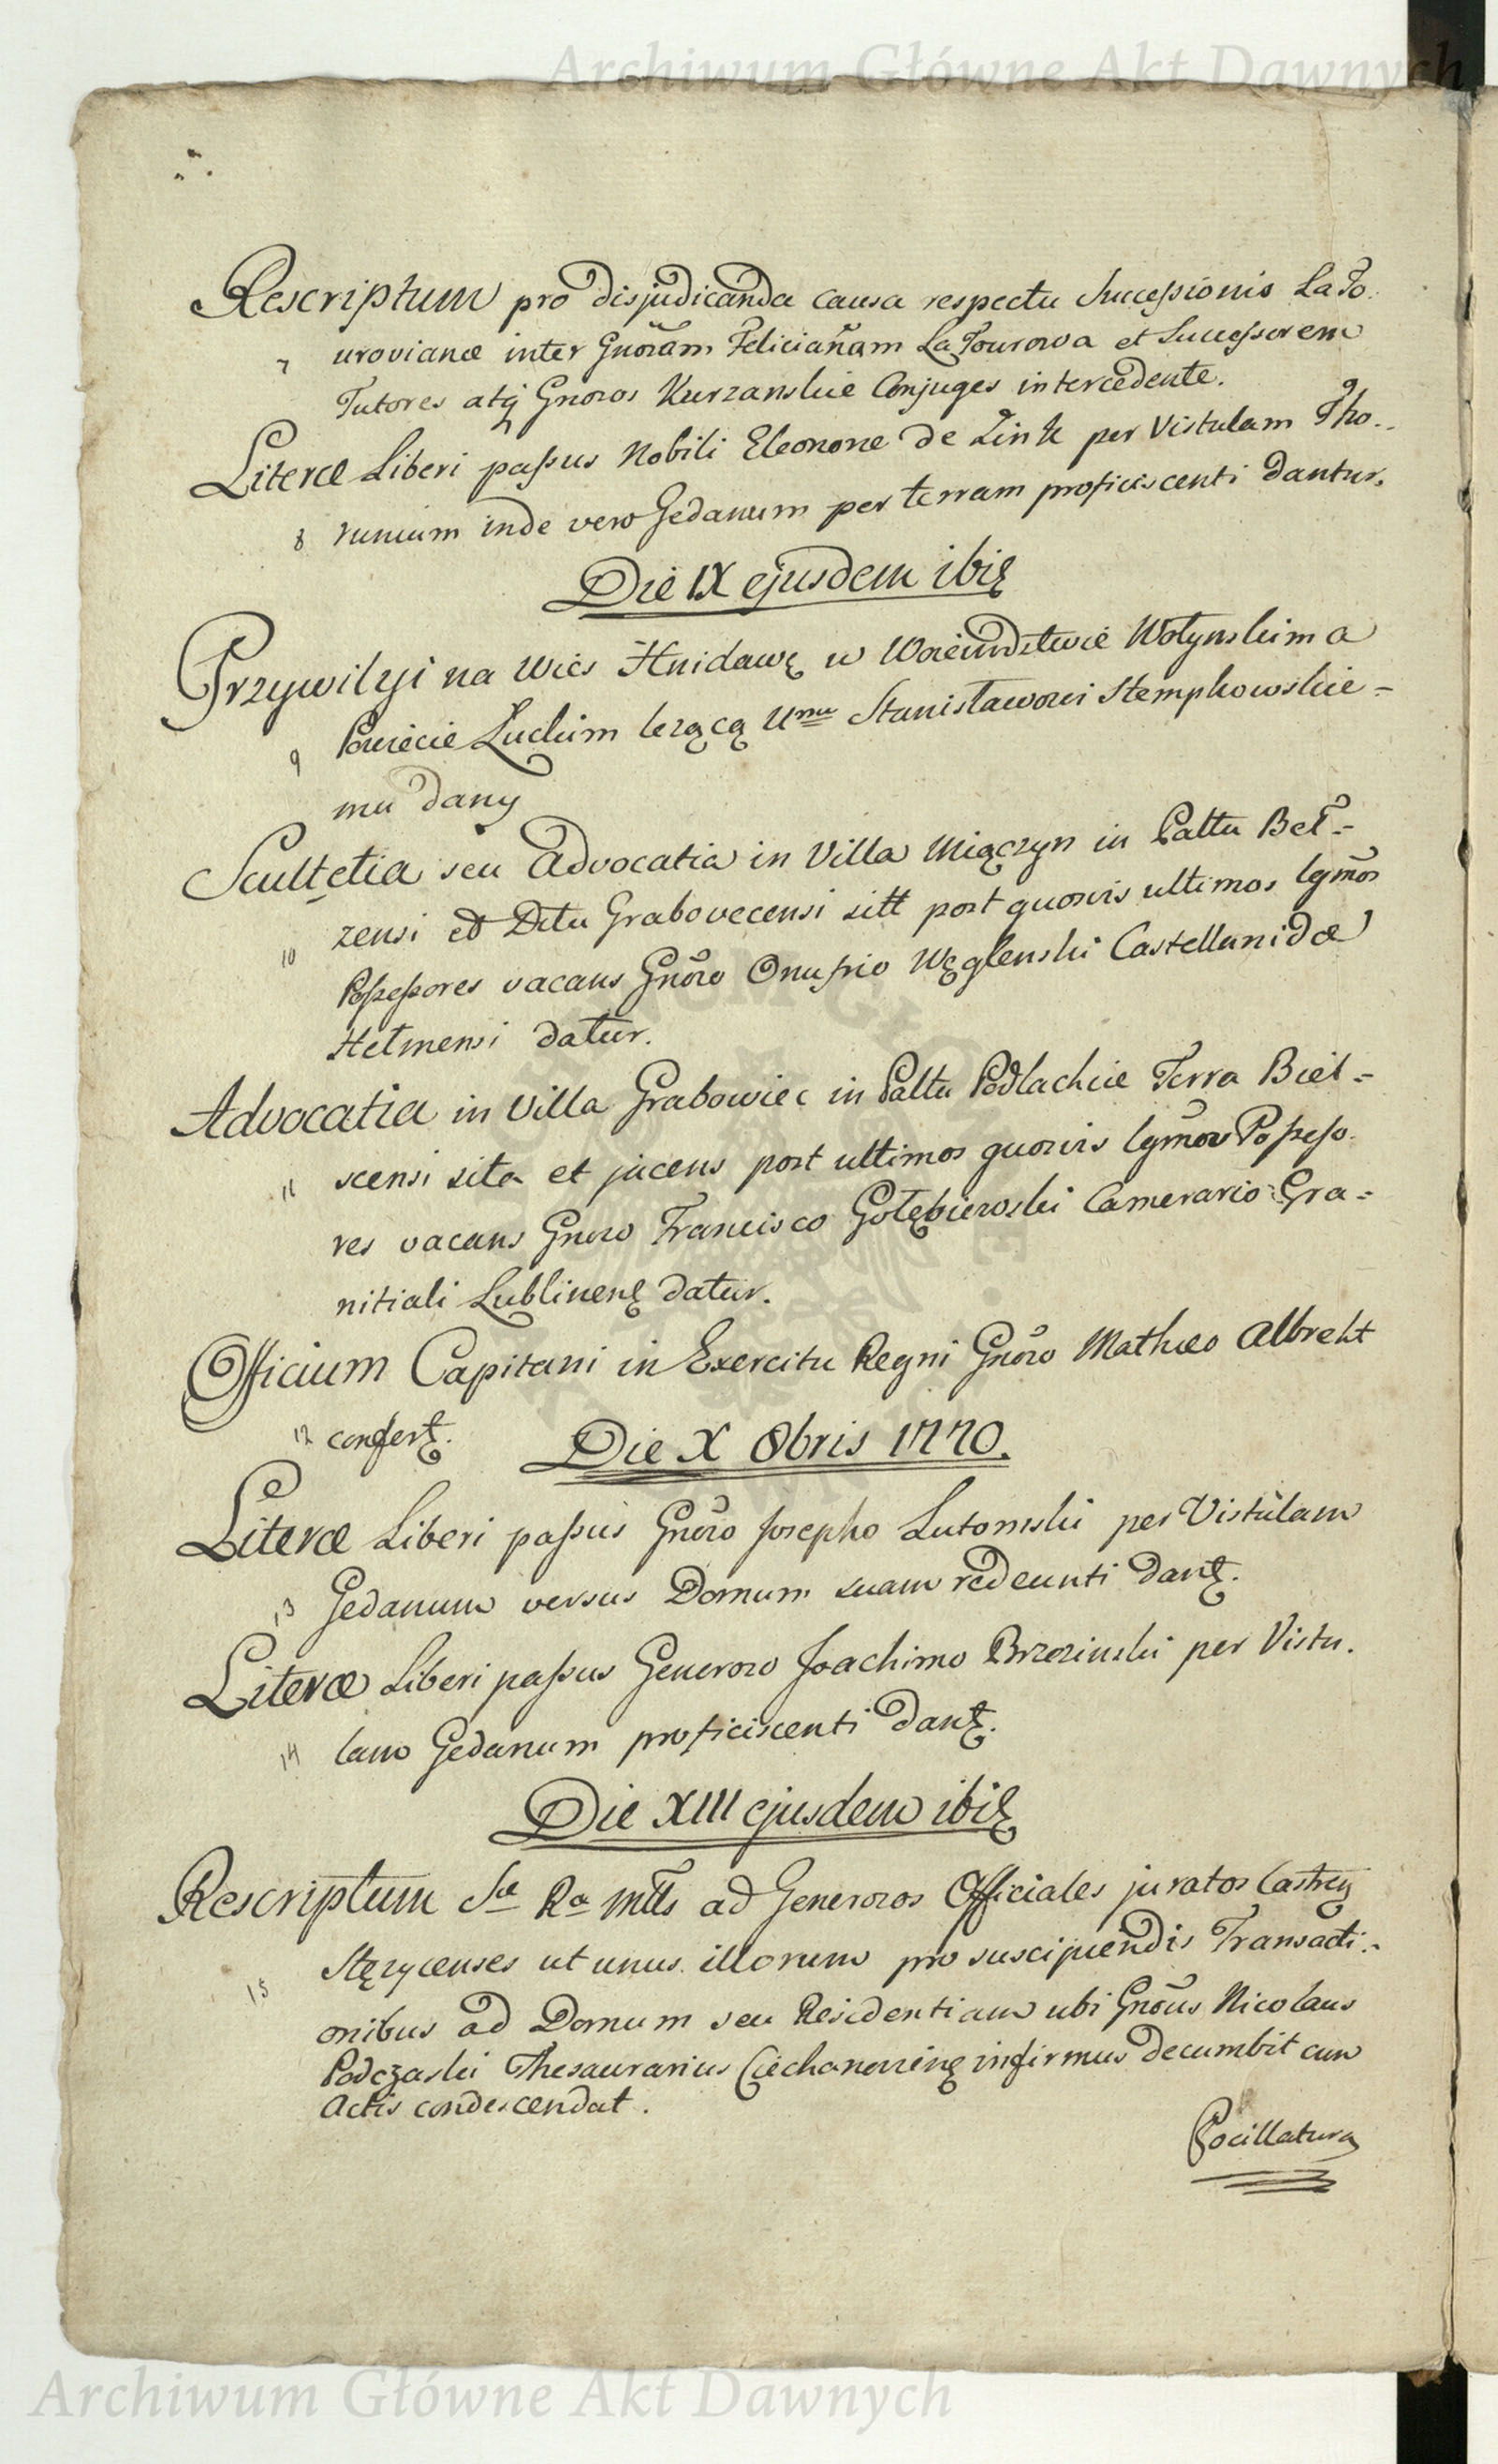 Archiwum Główne Akt Dawnych
Rescriptum pro disjudicanda causa respectu Successionis LaTo-
7 urovianæ inter Gnõsam Feliciañam LaTourowa et Successorem
Tutores atq́ Gnosos Kurzanskie Conjuges intercedente.
Literæ Liberi passus Nobili Eleonoræ de Link per Vistulam Tho-
8 runium inde vero Gedanum per terram proficiscenti dantur.
Die IX ejusdem ibiꝫ
Przywilyi na Wieś Hnidawę w Woiewodztwie Wołynskim a
9 Powiecie Luckim lezącą Ummu Stanisławowi Stempkowskie-
mu dany
Scultetia seu Advocatia in Villa Miączyn in Pallu Bel-
10 zensi et Dttu Grabovecensi sitt post quosvis ultimos lgmõs
Possessores vacans Gnõso Onufrio Węglenski Castellanidæ
Helmensi datur.
Advocatia in Villa Grabowiec in Pallu Podlachiæ Terra Biel-
11 scensi sita et jacens post ultimos quosvis lgmõs Possesso-
res vacans Gnoso Francisco Gołębiewski Camerario Gra-
nitiali Lublinenꝫ datur.
Officium Capitani in Exercitu Regni Gnõso Mathæo Albreht
12 confertꝫ.
Die X 8bris 1770.
Literæ Liberi passus Gnõso Josepho Lutomski per Vistulam
13 Gedanum versus Domum suam redeunti dantꝫ.
Literæ Liberi passus Generoso Joachimo Brzezinski per Vistu-
14 lam Gedanum proficiscenti dantꝫ.
Die XIII ejusdem ibiꝫ
Rescriptum Sæ Ræ Mttis ad Generosos Officiales juratos Castren
15 Stęzycenses ut unus illorum pro suscipiendis Transacti-
onibus ad Domum seu Residentiam ubi Gnõsus Nicolaus
Podczaski Thesaurarius Ciechanoviensꝫ infirmus decumbit cum
Actis condescendat.
Pocillatura
Archiwum Główne Akt Dawnych